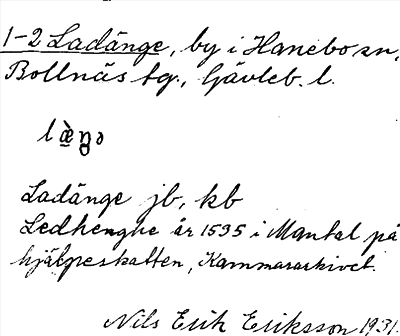 1-2 Ladänge, by i Hanebo sn,
Bollnäs tg., Gävleb. l.
Ladänge jb, kb
Ledhenghe år 1535 i Mantal på
hjälpeskatten, Kammararkivet.
Nils Erik Eriksson 1931.